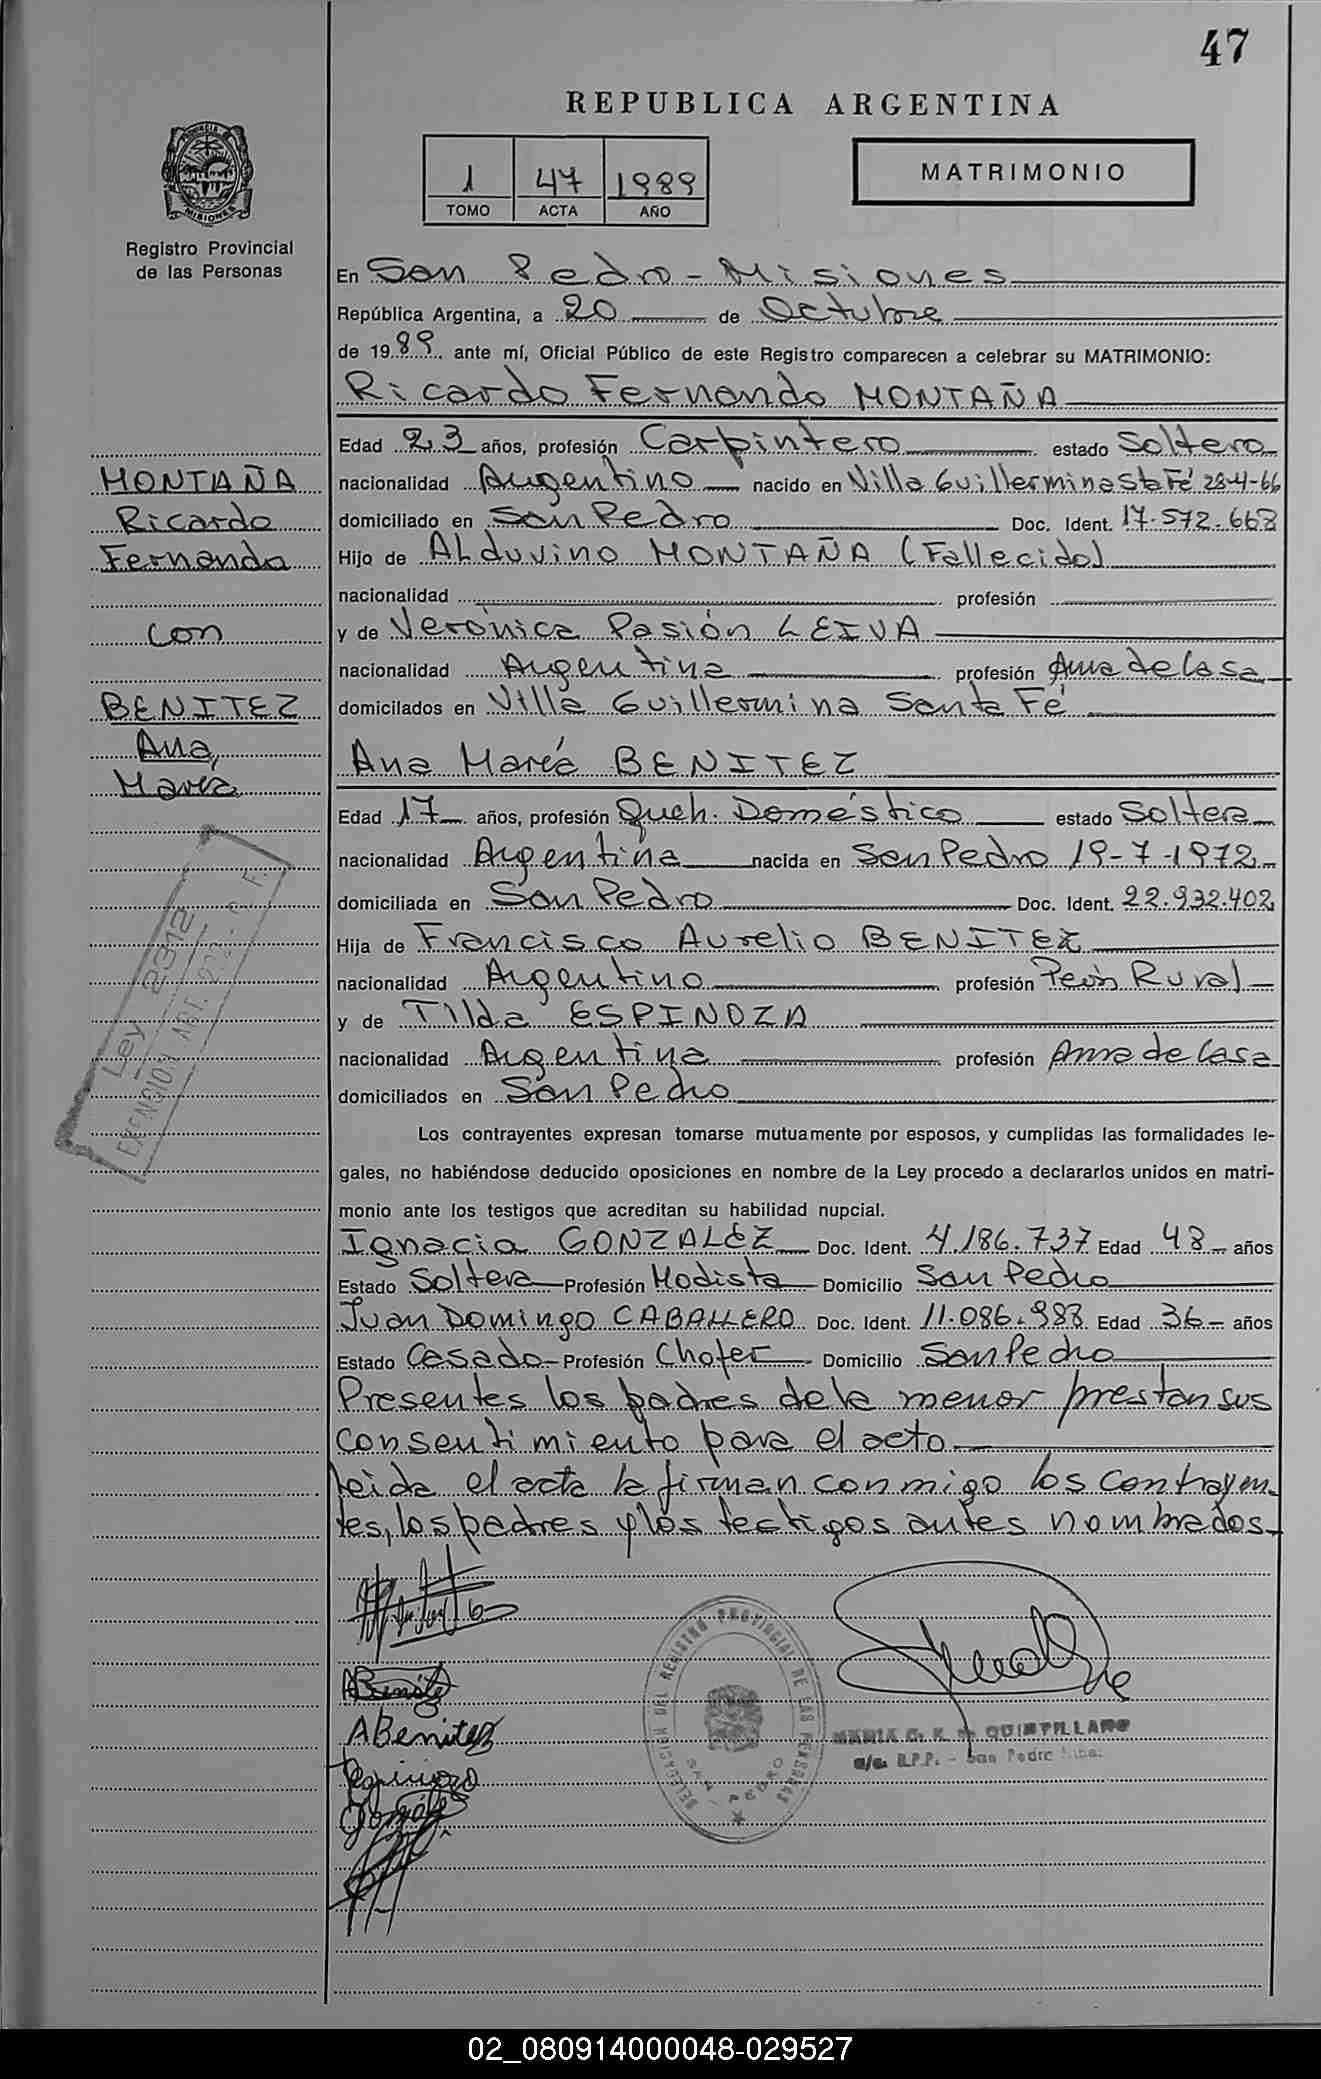 47
REPUBLICA ARGENTINA
PROVINCIA DE
MISIONES
Registro Provincial
de las Personas
1 47 1989
TOMO ACTA AÑO
MATRIMONIO
En San Pedro - Misiones
República Argentina, a 20 de Octubre
de 1989. ante mí, Oficial Público de este Registro comparecen a celebrar su MATRIMONIO:
Ricardo Fernando MONTAÑA
MONTAÑA
Ricardo
Fernando
con
BENITEZ
Ana
María
Edad 23 años, profesión Carpintero estado Soltero
nacionalidad Argentino nacido en Villa Guillermina Sta Fé 28-4-66
domiciliado en San Pedro Doc. Ident. 17.572.668
Hijo de ALduvino MONTAÑA (Fallecido)
nacionalidad profesión
y de Verónica Pasión LEIVA
nacionalidad Argentina profesión Ama de Casa
domicilados en Villa Guillermina Santa Fé
Ana María BENITEZ
Edad 17 años, profesión Queh. Doméstico estado Soltera
nacionalidad Argentina nacida en San Pedro 19-7-1972
domiciliada en San Pedro Doc. Ident. 22.932.402
Hija de Francisco Aurelio BENITEZ
nacionalidad Argentino profesión Peón Rural
y de Tilda ESPINDZA
nacionalidad Argentina profesión Ama de Casa
domiciliados en San Pedro
Ley 2312
EXENCION ART.
Los contrayentes expresan tomarse mutuamente por esposos, y cumplidas las formalidades le-
gales, no habiéndose deducido oposiciones en nombre de la Ley procedo a declararlos unidos en matri-
monio ante los testigos que acreditan su habilidad nupcial.
Ignacia GONZALEZ Doc. Ident. 4.186.737 Edad 48 años
Estado Soltera Profesión Modista Domicilio San Pedro
Juan Domingo CABALLERO Doc. Ident. 11.086.988 Edad 36 años
Estado Casado Profesión Chofer Domicilio San Pedro
Presentes los padres de la menor prestan sus
consentimiento para el acto
leida el acta la firman conmigo los contrayen-
tes, los padres y los testigos antes nombrados.
ABenitez
ABenitez
DELEGACION DEL REGISTRO PROVINCIAL DE LAS PERSONAS
SAN PEDRO
MARIA G. K. de QUINTILLANO
a/c. R.P.P. - San Pedro
02_080914000048-029527